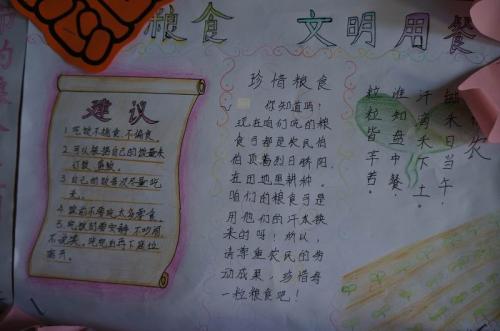 粮食 文明用餐
建议
1.吃饭不挑食不偏食。
2.可以根据自己的饭量来
打饭、盛饭。
3.自己的饭每次尽量吃
完。
4.饭前不要吃太多零食。
5.吃饭时要安静 不吵闹
不说笑。吃完后再下座位
离开。
珍惜粮食
你知道吗!
现在咱们吃的粮
食可都是农民伯
伯顶着烈日骄阳,
在田地里耕种。
咱们的粮食可是
用他们的汗水换
来的呀!所以,
请尊重农民的劳
动成果,珍惜每
一粒粮食吧!
农
锄禾日当午,
汗滴禾下土。
谁知盘中餐,
粒粒皆辛苦。